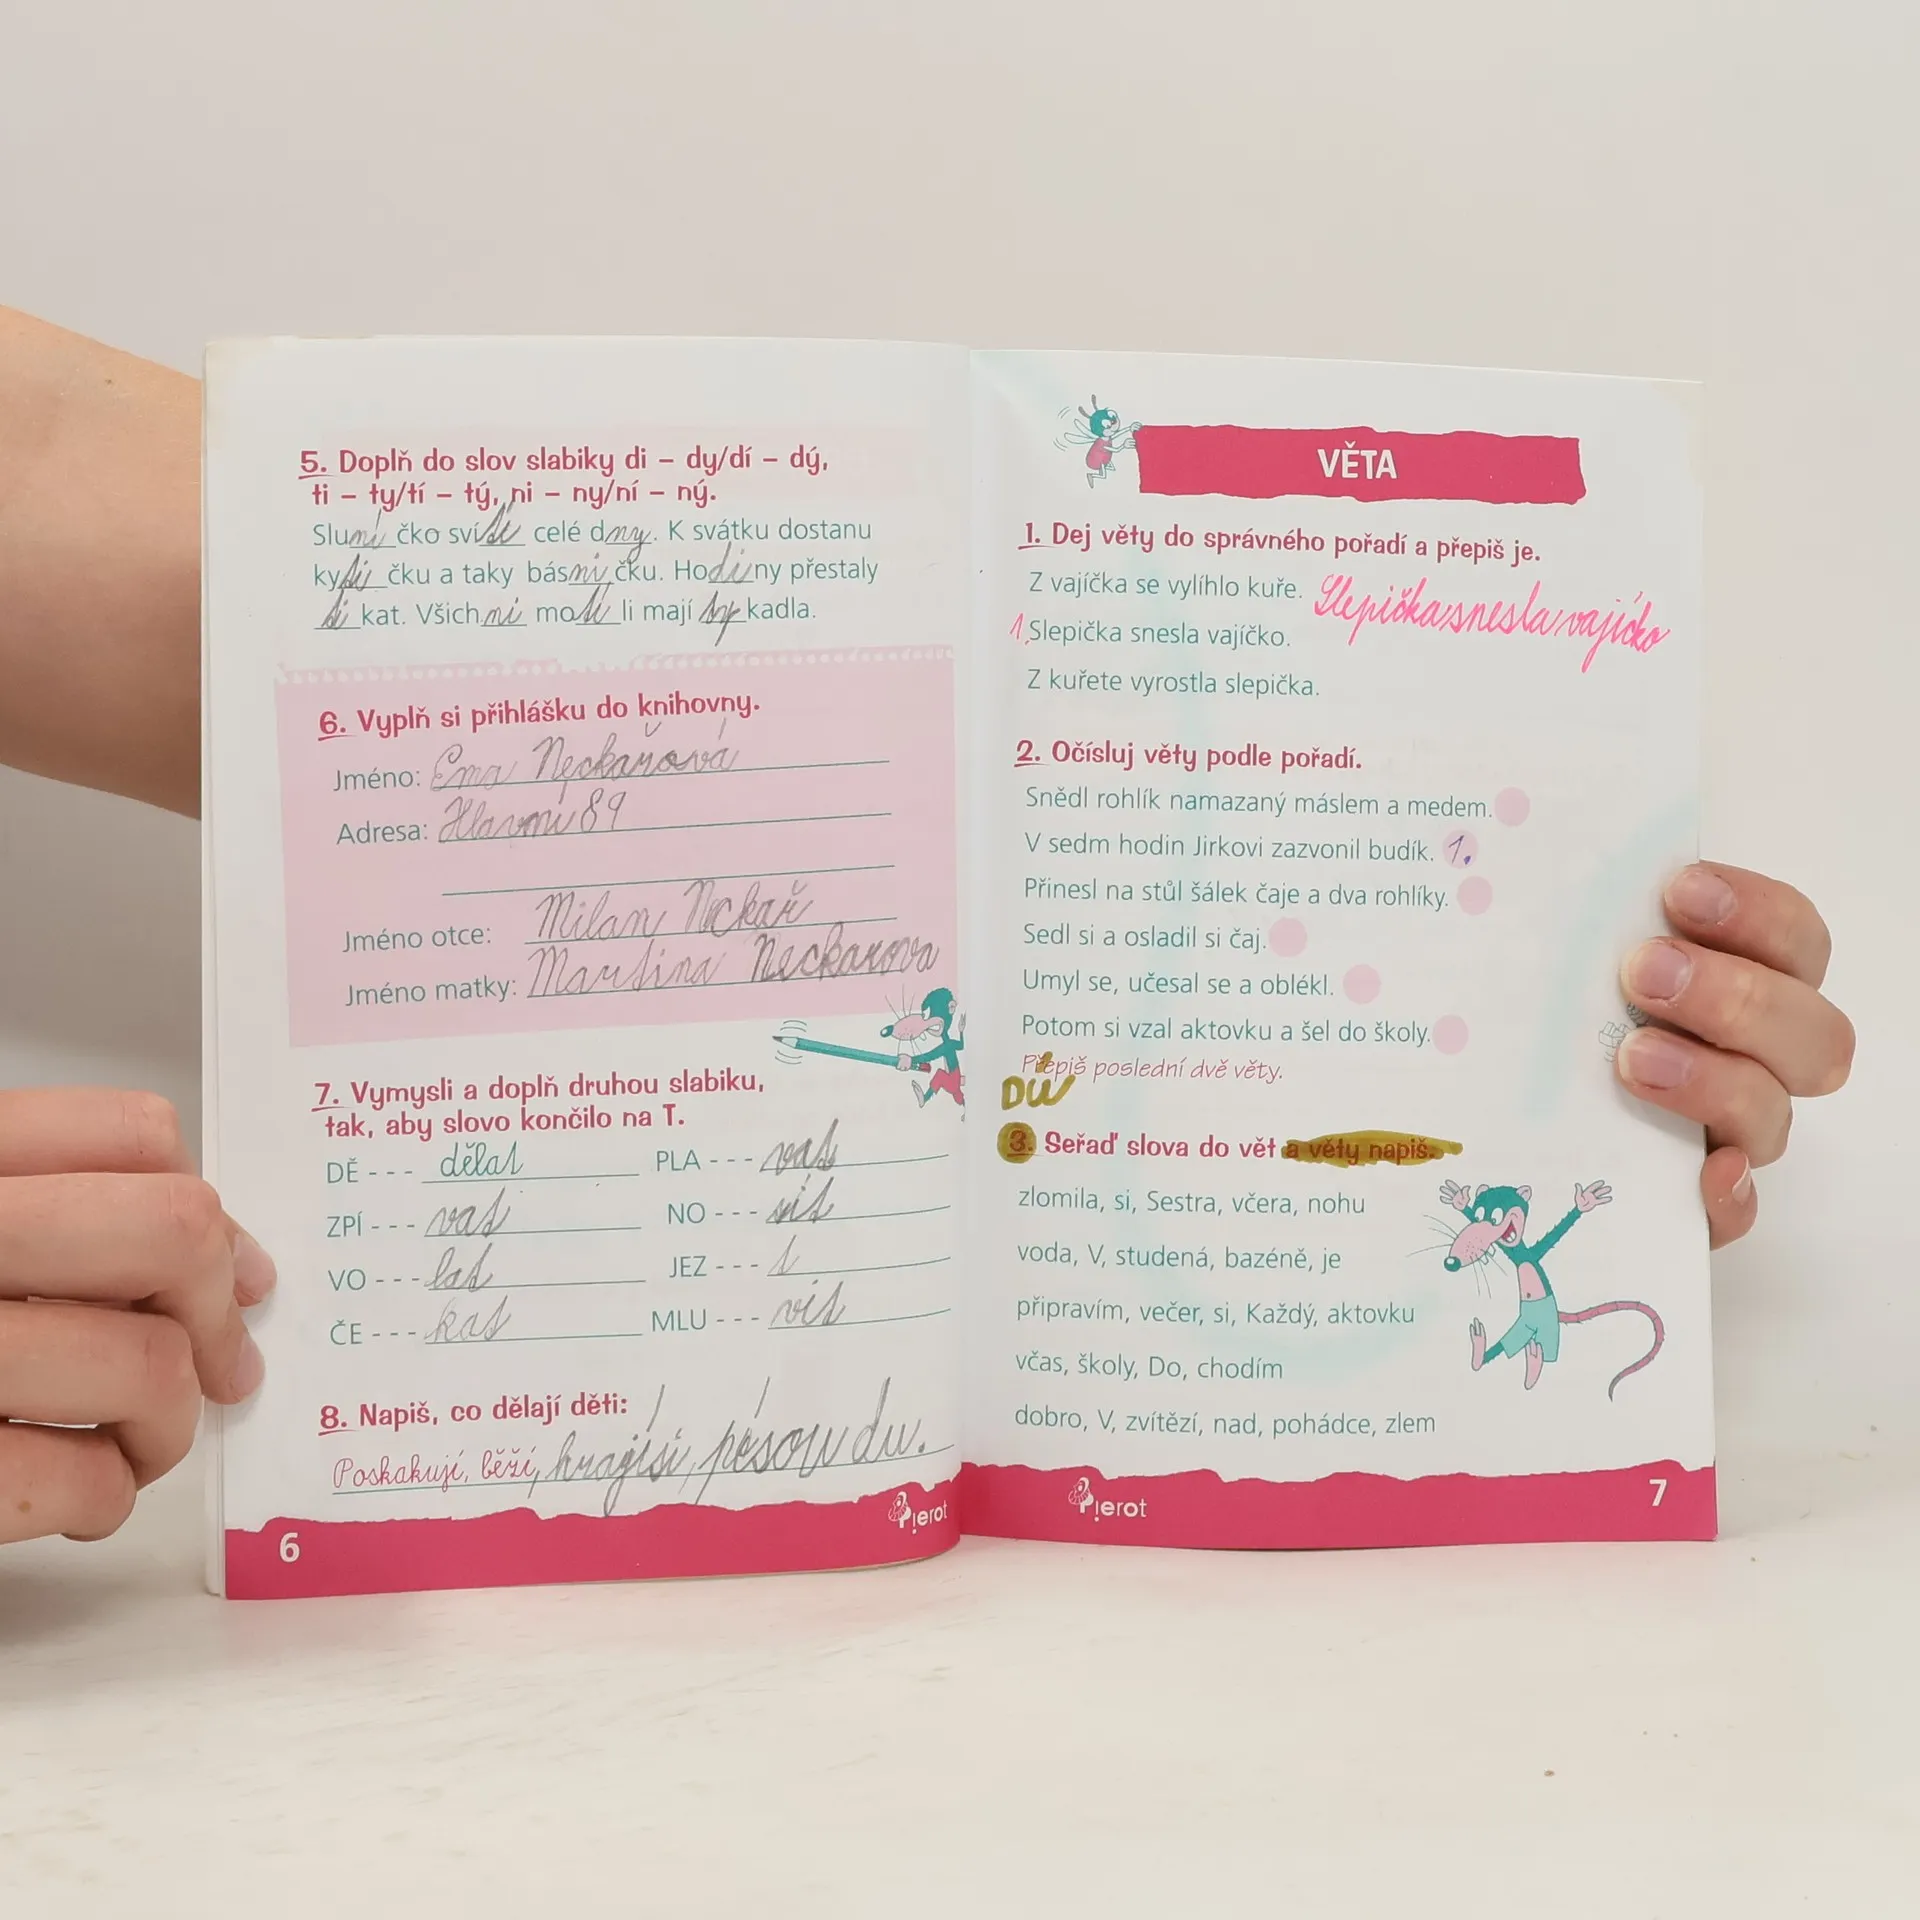 5. Doplň do slov slabiky di – dy/dí – dý,
ti – ty/tí – tý, ni – ny/ní – ný.
Sluníčko svítí celé dny. K svátku dostanu
kytičku a taky básničku. Hodiny přestaly
tikat. Všichni motíli mají tykadla.
6. Vyplň si přihlášku do knihovny.
Jméno: Ema Neckařová
Adresa: Hlavní 89
Jméno otce: Milan Neckař
Jméno matky: Martina Neckarova
7. Vymysli a doplň druhou slabiku,
tak, aby slovo končilo na T.
DĚ - - - dělat PLA - - - vat
ZPÍ - - - vat NO - - - sit
VO - - - lat JEZ - - - t
ČE - - - kat MLU - - - vit
8. Napiš, co dělají děti:
Poskakují, běží,
Pierot
6
VĚTA
1. Dej věty do správného pořadí a přepiš je.
Z vajíčka se vylíhlo kuře. Slepička snesla vajíčko
1. Slepička snesla vajíčko.
Z kuřete vyrostla slepička.
2. Očísluj věty podle pořadí.
Snědl rohlík namazaný máslem a medem.
V sedm hodin Jirkovi zazvonil budík. 1.
Přinesl na stůl šálek čaje a dva rohlíky.
Sedl si a osladil si čaj.
Umyl se, učesal se a oblékl.
Potom si vzal aktovku a šel do školy.
Přepiš poslední dvě věty.
DÚ
3. Seřaď slova do vět a věty napiš.
zlomila, si, Sestra, včera, nohu
voda, V, studená, bazéně, je
připravím, večer, si, Každý, aktovku
včas, školy, Do, chodím
dobro, V, zvítězí, nad, pohádce, zlem
Pierot
7